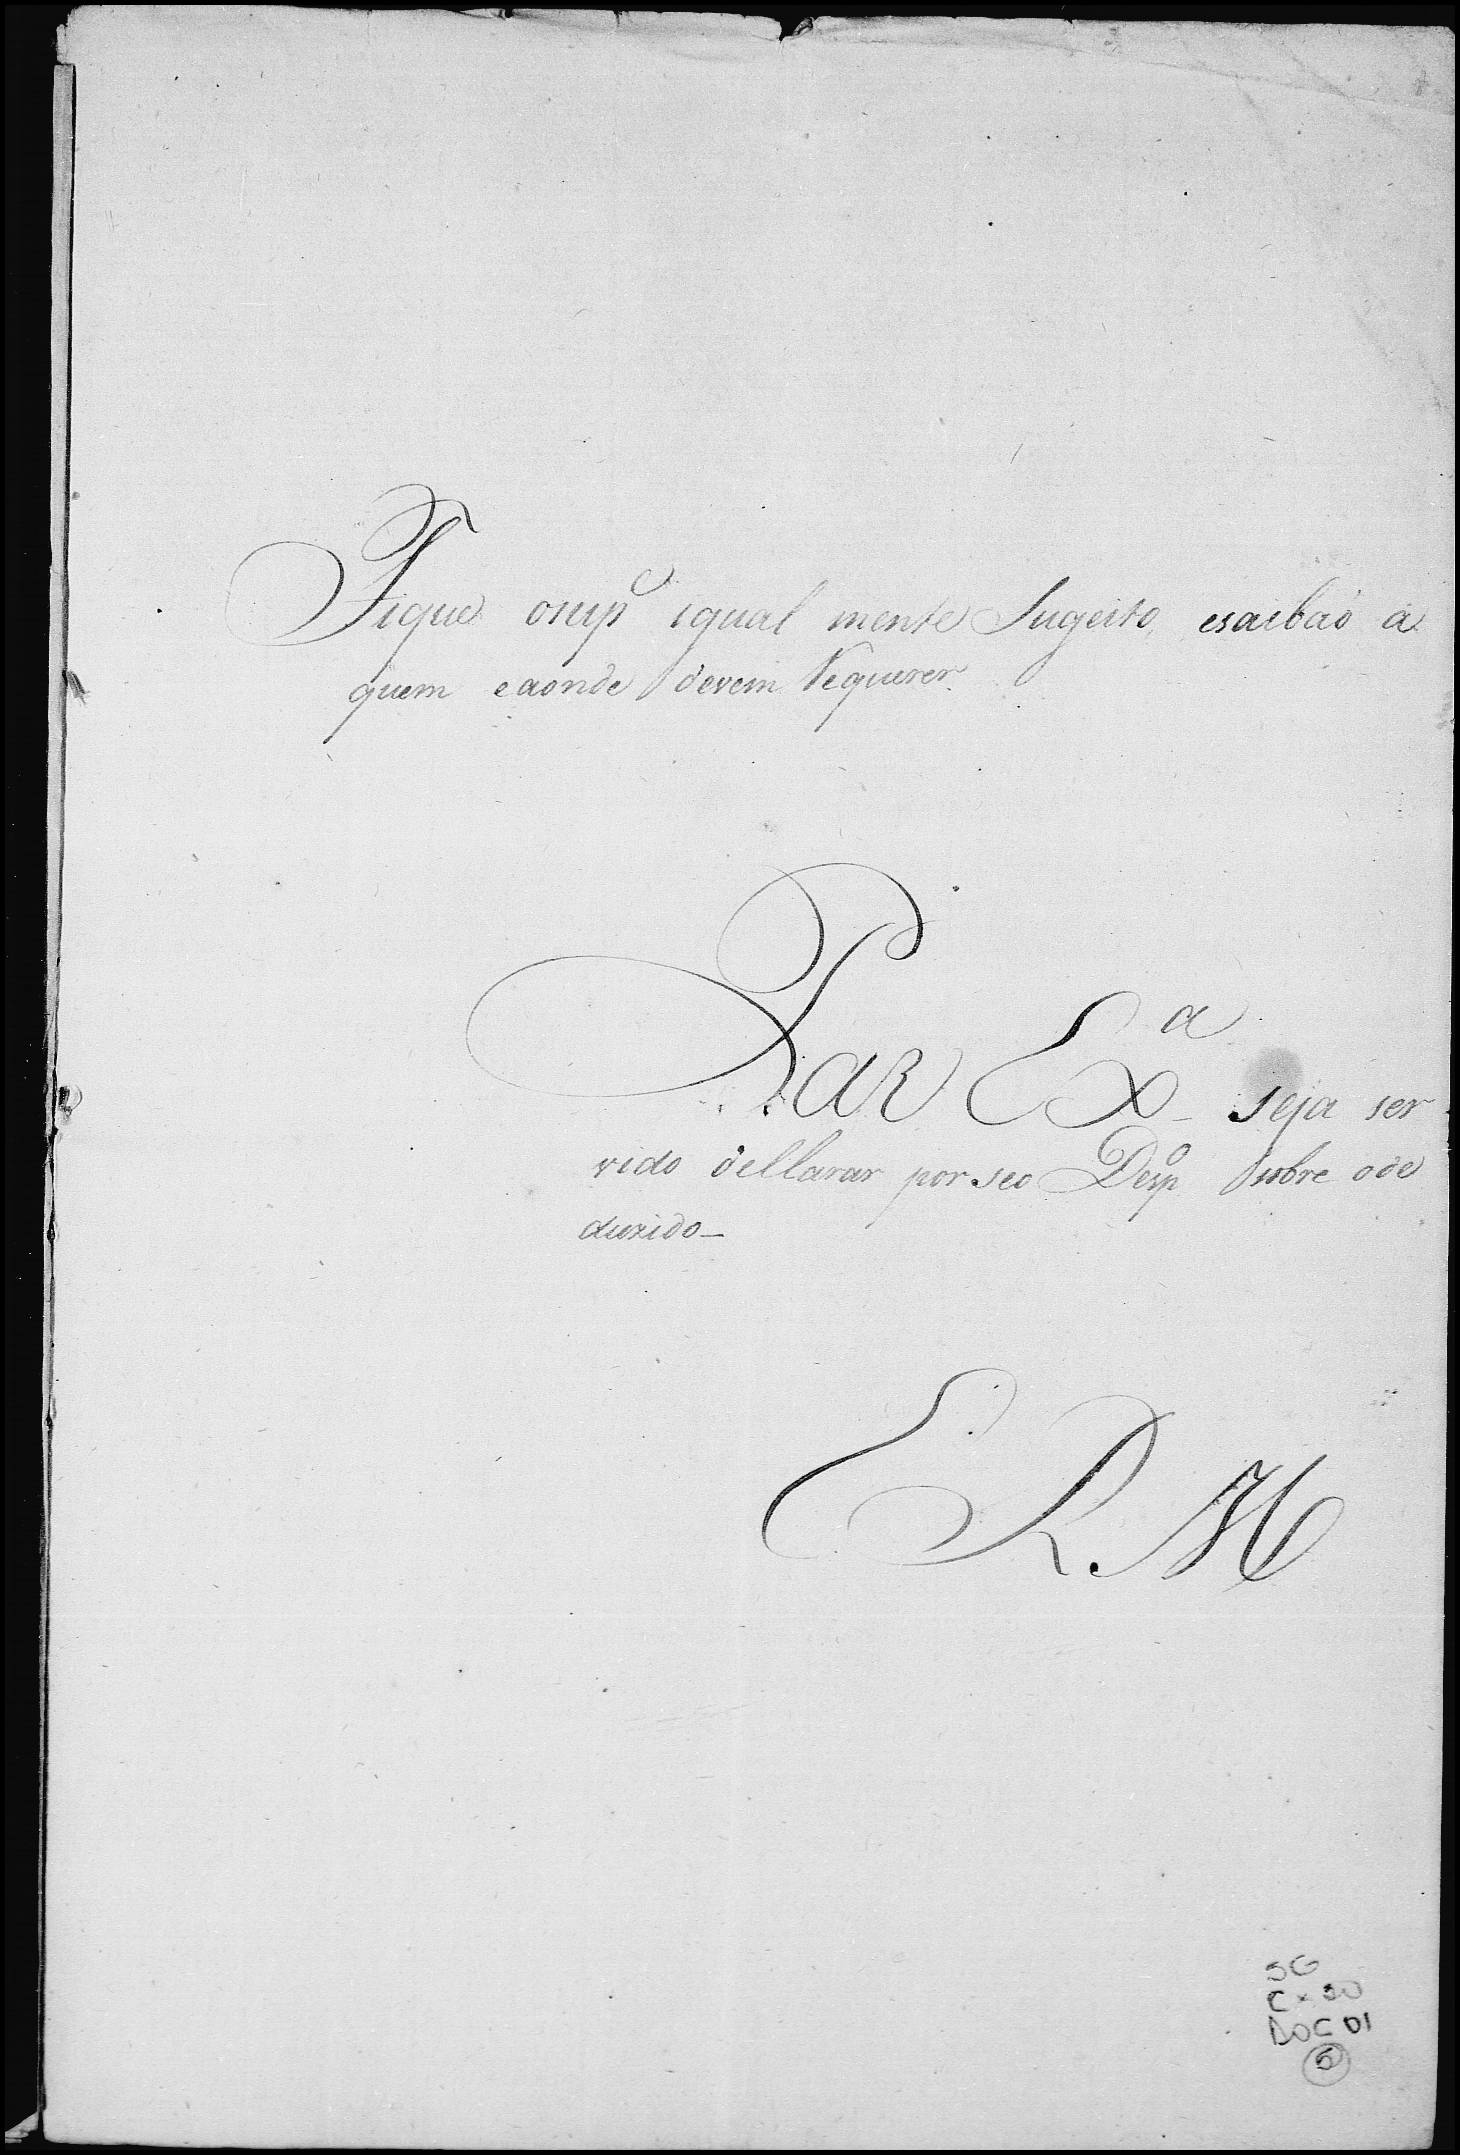 Fique osup^e igual mente Sugeito, esaibaõ a
quem eaonde devem Requerer.
P a V Ex^a seja ser
vido dellarar por seo Desp^o sobre ode
duzido_
E R. M
SG
Cx 30
DOC 01
5